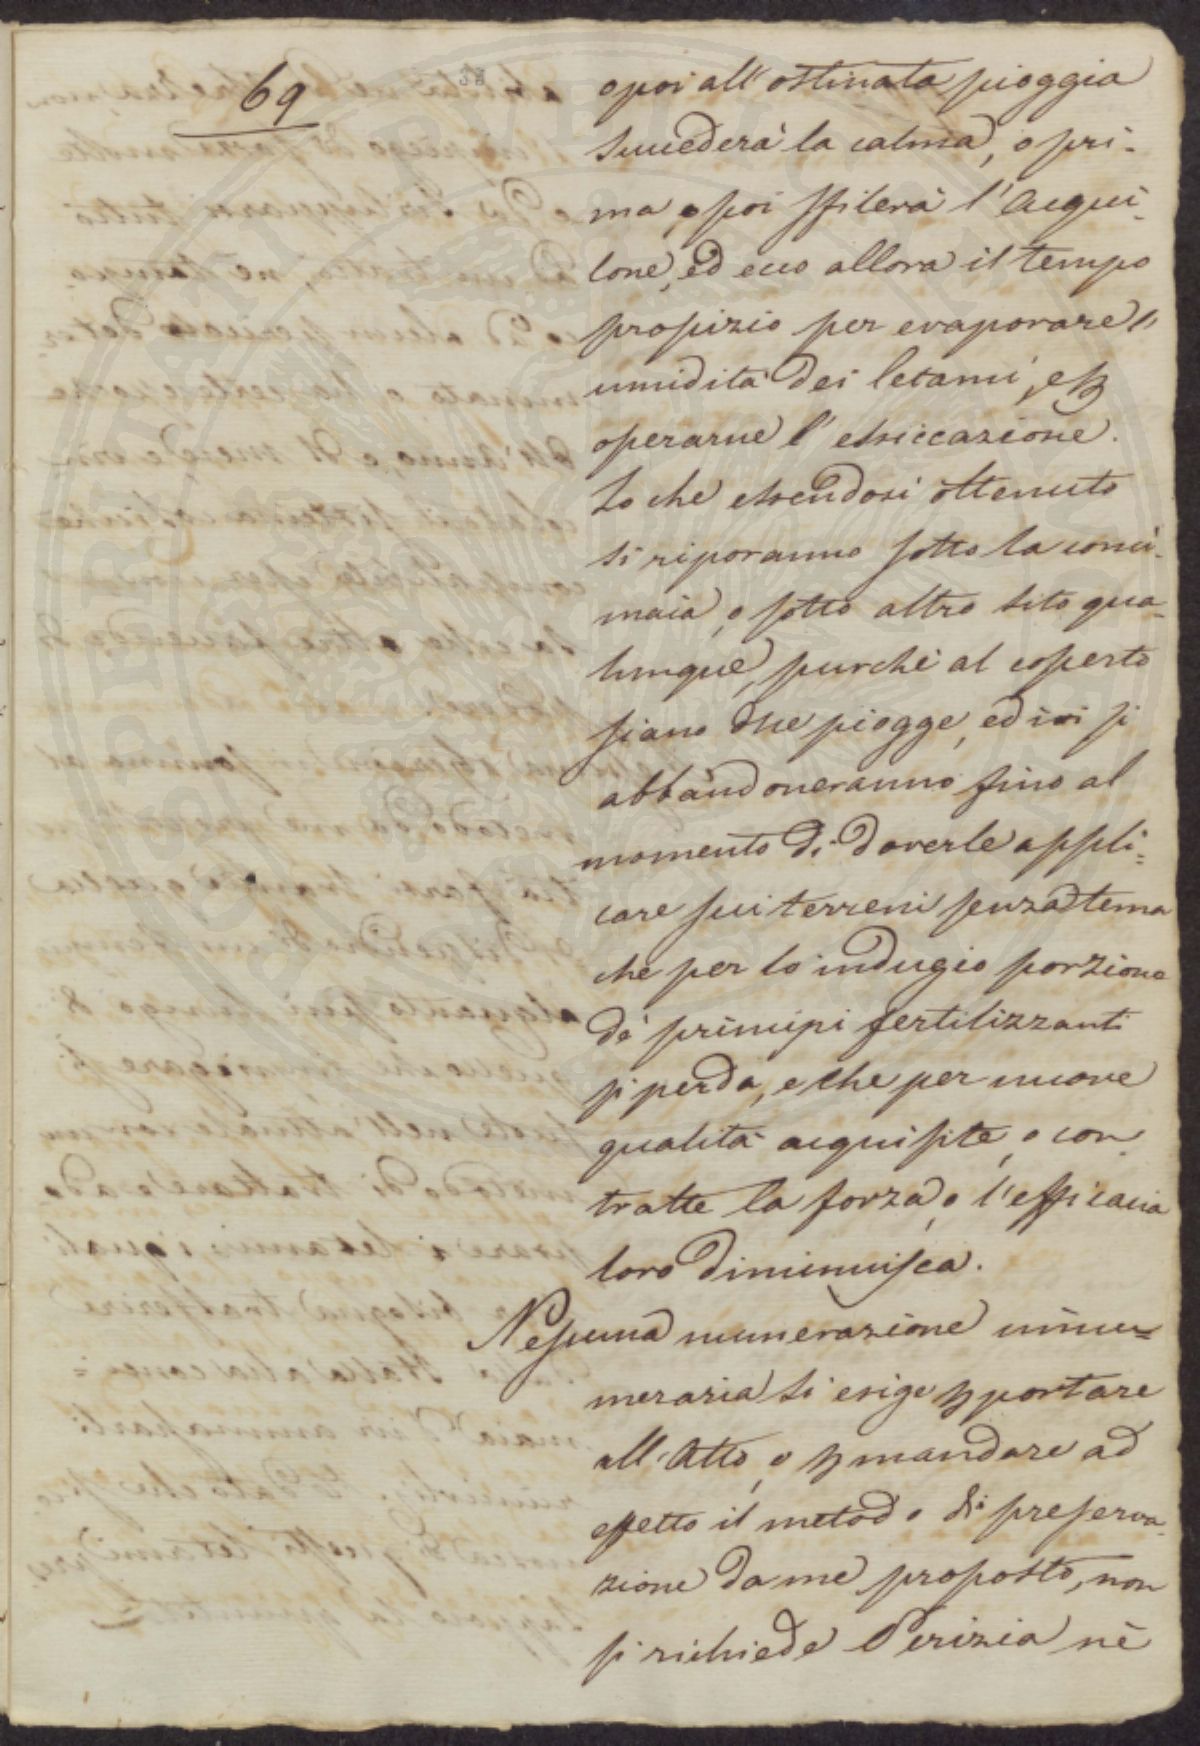 69
o poi all'ostinata pioggia
succederà la calma, o pri-
ma, o poi sfilerà l'Aqui-
lone, ed ecco allora il tempo
propizio per evaporare l'
umidità dei letami, e p
operarne l'essiccazione.
Lo che essendosi ottenuto
si riporanno sotto la conci-
maia, o sotto altro sito qua-
lunque, purchè al coperto
siano dlle piogge, ed ivi si
abbandoneranno fino al
momento di doverle appli=
care sui terreni senza tema
che per lo indugio porzione
de' principi fertilizzanti
si perda, e che per nuove
qualità acquisite, o con
tratte la forza, o l'efficacia
loro diminuisca.
Nessuna numerazione innu=
meraria si esige p portare
all'Atto, o p mandare ad
effetto il metodo di preserva-
zione da me proposto, non
si richiede Perizia nè